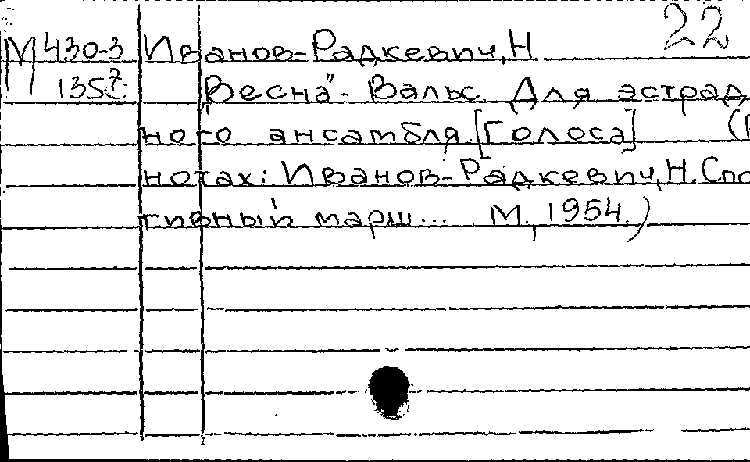 22
М 430-3 Иванов-Радкевич, Н
1357 "Весна". Вальс. Для эстрад
ного ансамбля. [Голоса] (
нотах: Иванов-Радкевич, Н. Спо
тивный марш... М., 1954.)